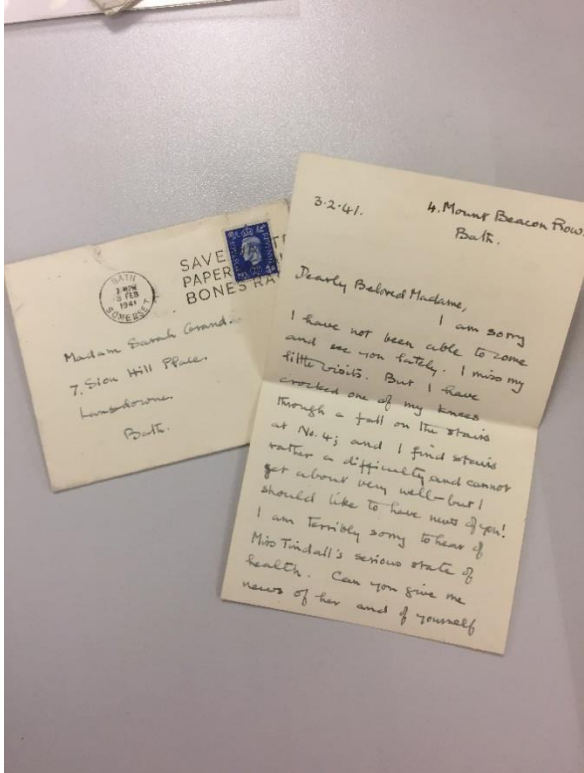 BATH
3 FEB
1941
SOMERSET
SAVE
PAPER
BONES RA
Madam Sarah Grand.
7. Sion Hill Place.
Lansdowne.
Bath.
3.2.41.
4. Mount Beacon Row.
Bath.
Dearly Beloved Madame,
I am sorry
I have not been able to come
and see you lately. I miss my
little visits. But I have
crocked one of my knees
through a fall on the stairs
at No. 4; and I find stairs
rather a difficulty and cannot
get about very well – but I
should like to have news of you!
I am terribly sorry to hear of
Miss Tindall's serious state of
health. Can you give me
news of her and of yourself